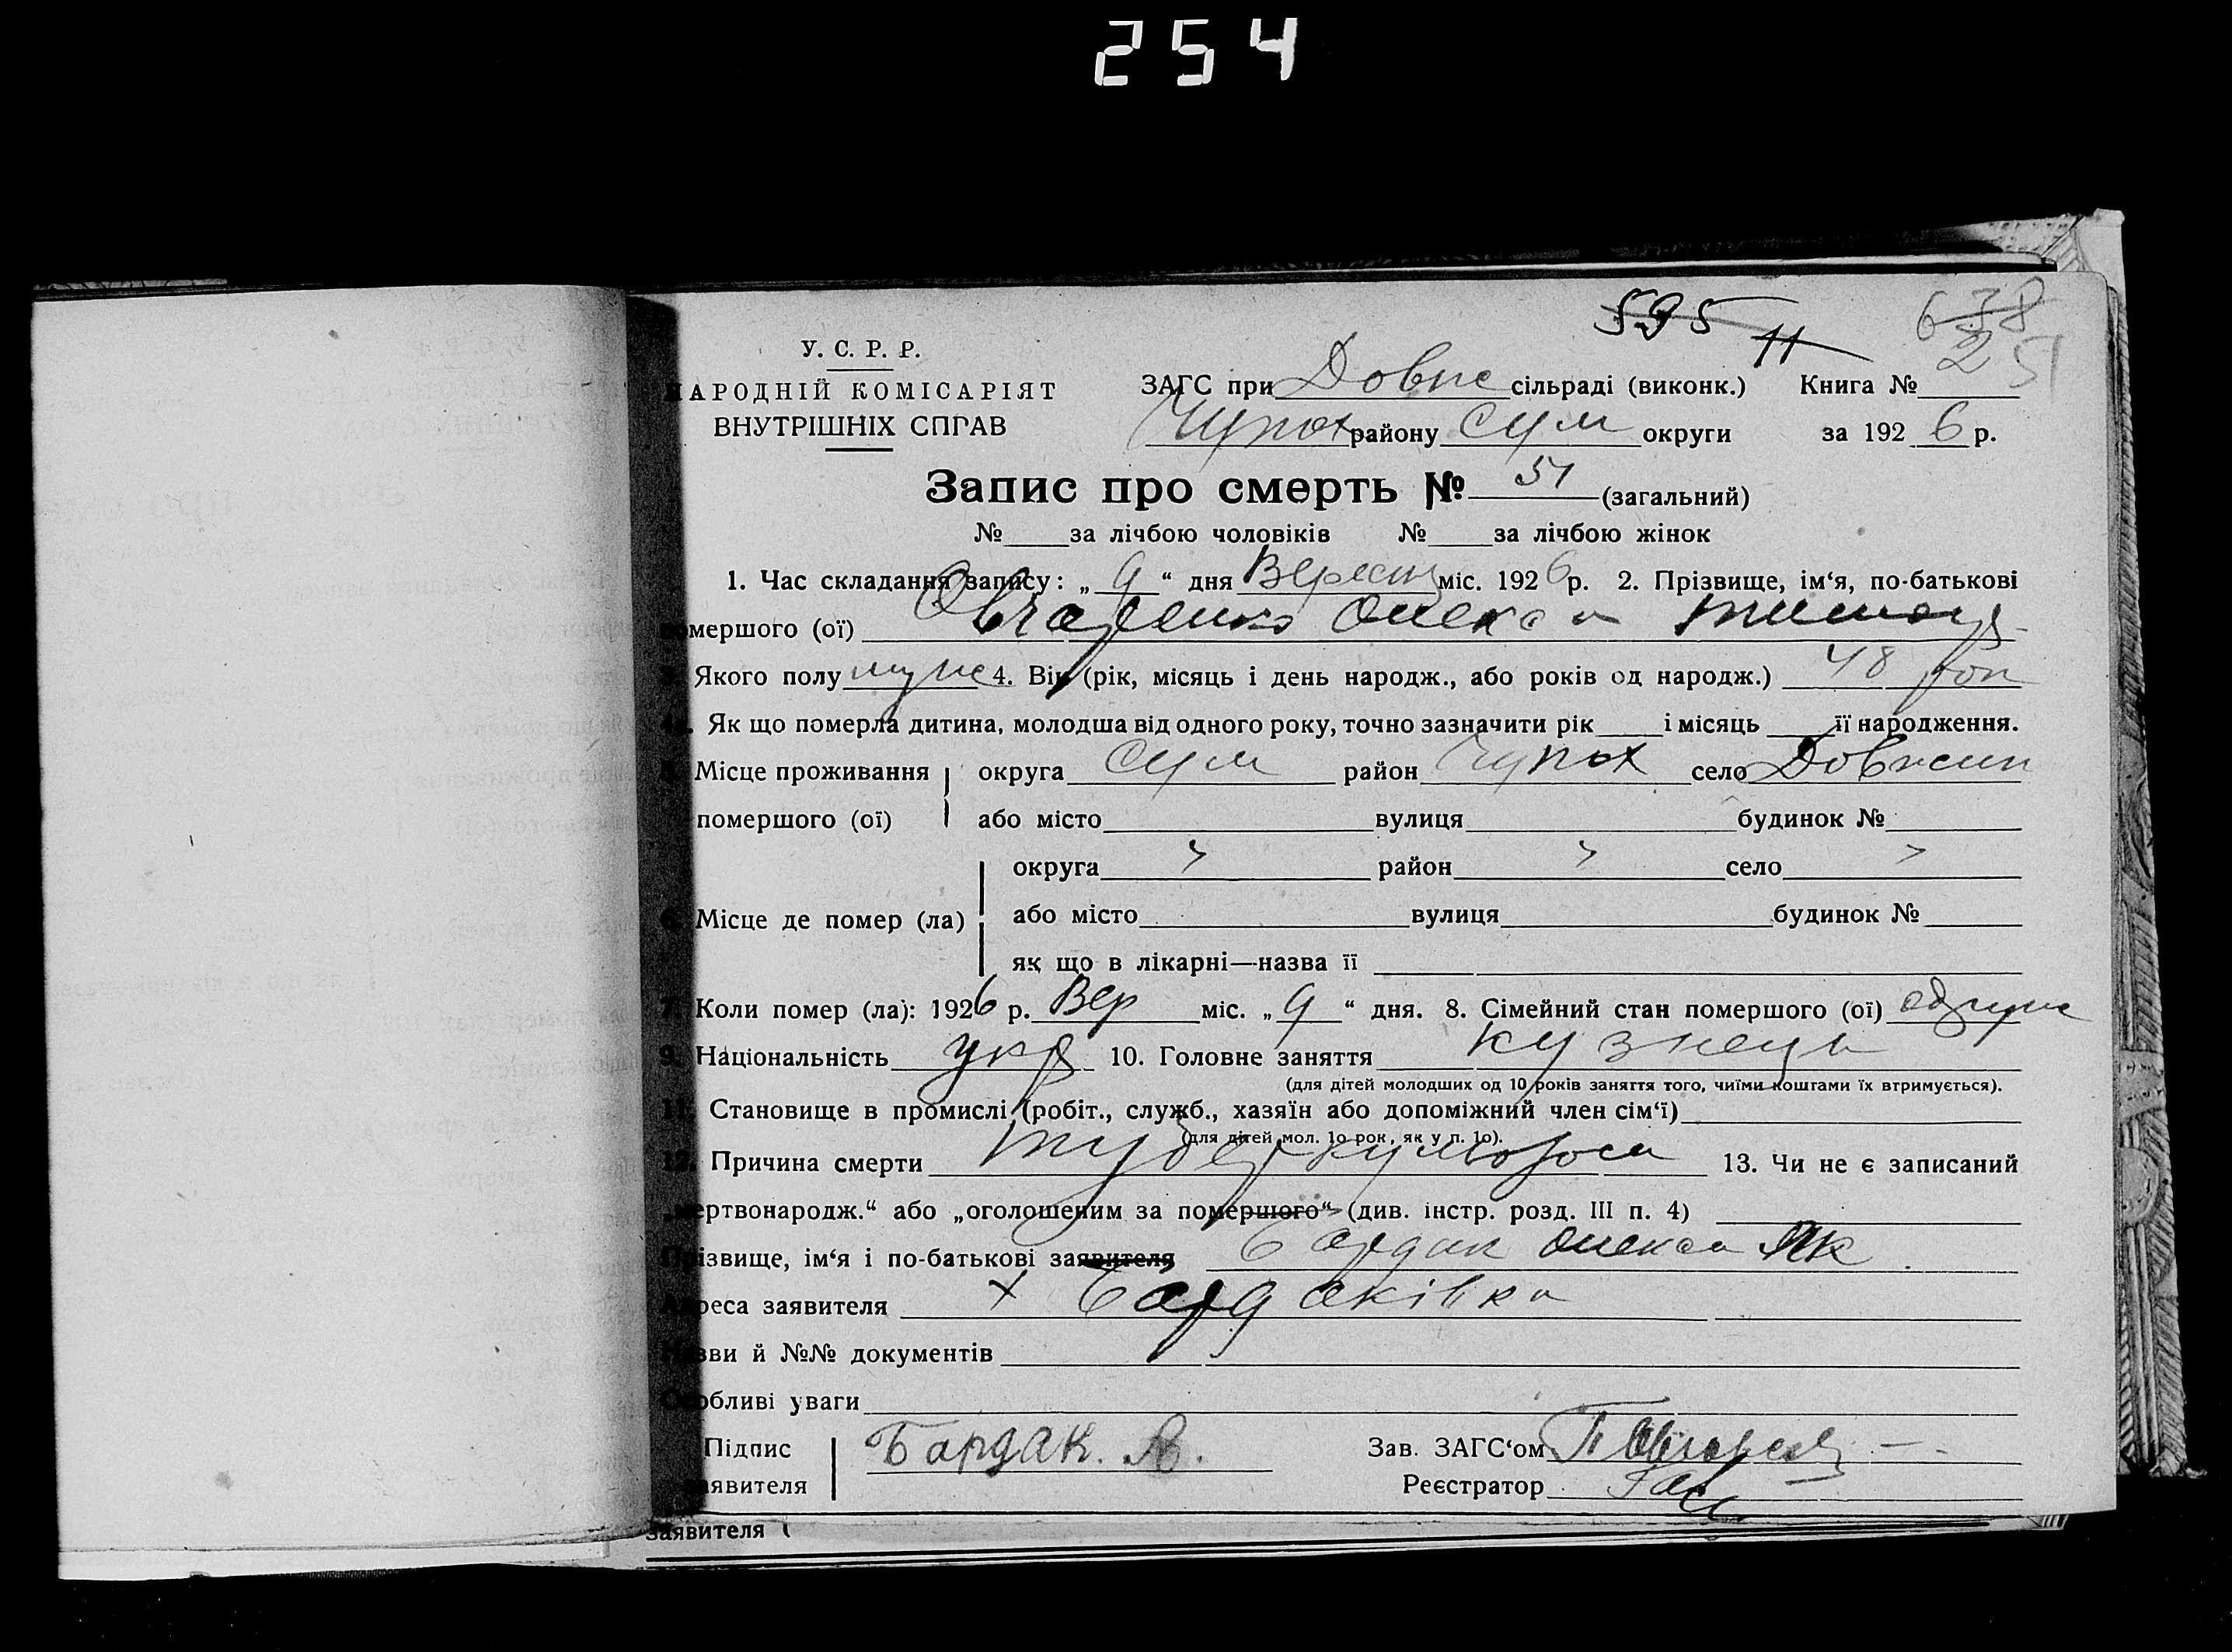 254
595 11
638
25
У. С. Р. Р.
НАРОДНІЙ КОМІСАРІЯТ
ВНУТРІШНІХ СПРАВ
ЗАГС при Довж сільраді (виконк.) Книга № 51
Чупах району Сум округи за 1926 р.
Запис про смерть № 51 (загальний)
№ за лічбою чоловіків № за лічбою жінок
1. Час складання запису: „ 9 “ дня Вересн міс. 1926 р. 2. Прізвище, ім‘я, по-батькові
помершого (ої) Овчаренко Олекса
3. Якого полу муж 4. Вік (рік, місяць і день народж., або років од народж.) 48 рок
4а. Як що померла дитина, молодша від одного року, точно зазначити рік і місяць її народження.
5. Місце проживання округа Сум район Чупах село Довжик
помершого (ої) або місто вулиця будинок №
округа район село
6. Місце де помер (ла) або місто вулиця будинок №
як що в лікарні—назва її
7. Коли помер (ла): 1926 р. Вер міс. „ 9 “ дня. 8. Сімейний стан помершого (ої) одруж
9. Національність укр 10. Головне заняття кузнець
(для дітей молодших од 10 років заняття того, чиїми коштами їх втримується).
11. Становище в промислі (робіт., служб., хазяїн або допоміжний член сім‘ї)
(для дітей мол. 1о рок, як у п. 1о).
12. Причина смерти туберкульоза 13. Чи не є записаний
„мертвонародж.“ або „оголошеним за помершого“ (див. інстр. розд. III п. 4)
Прізвище, ім‘я і по-батькові заявителя Бардак Олекса Як
Адреса заявителя х Бардаківка
Назви й №№ документів
Особливі уваги
Підпис Бардак. А. Зав. ЗАГС‘ом
заявителя Реєстратор
заявителя